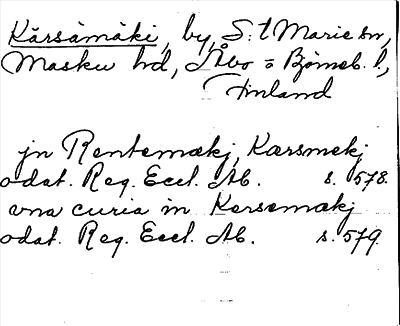 Kärsämäki, by, S:t Marie sn,
Masku hd, Åbo o Björneb. l,
Finland
jn Rentemækj, Kærsmekj
odat. Reg. Eccl. Ab. s. 578.
vna curia in Kersemækj
odat. Reg. Eccl. Ab. s. 579.